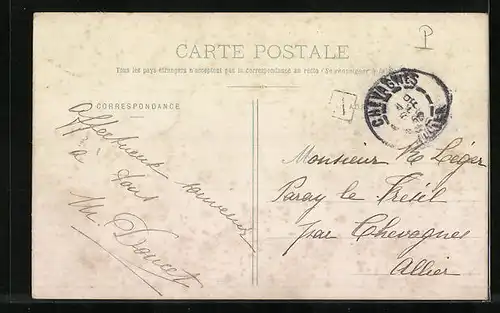 CARTE POSTALE
Tous les pays étrangers n'acceptent pas la correspondance au recto (Se renseigner à la
CORRESPONDANCE
Affectueux souvenir
à tous
M. Doucet
CHEVAGNES
ALLIER
Monsieur Léger
Paray le Frésil
par Chevagnes
Allier